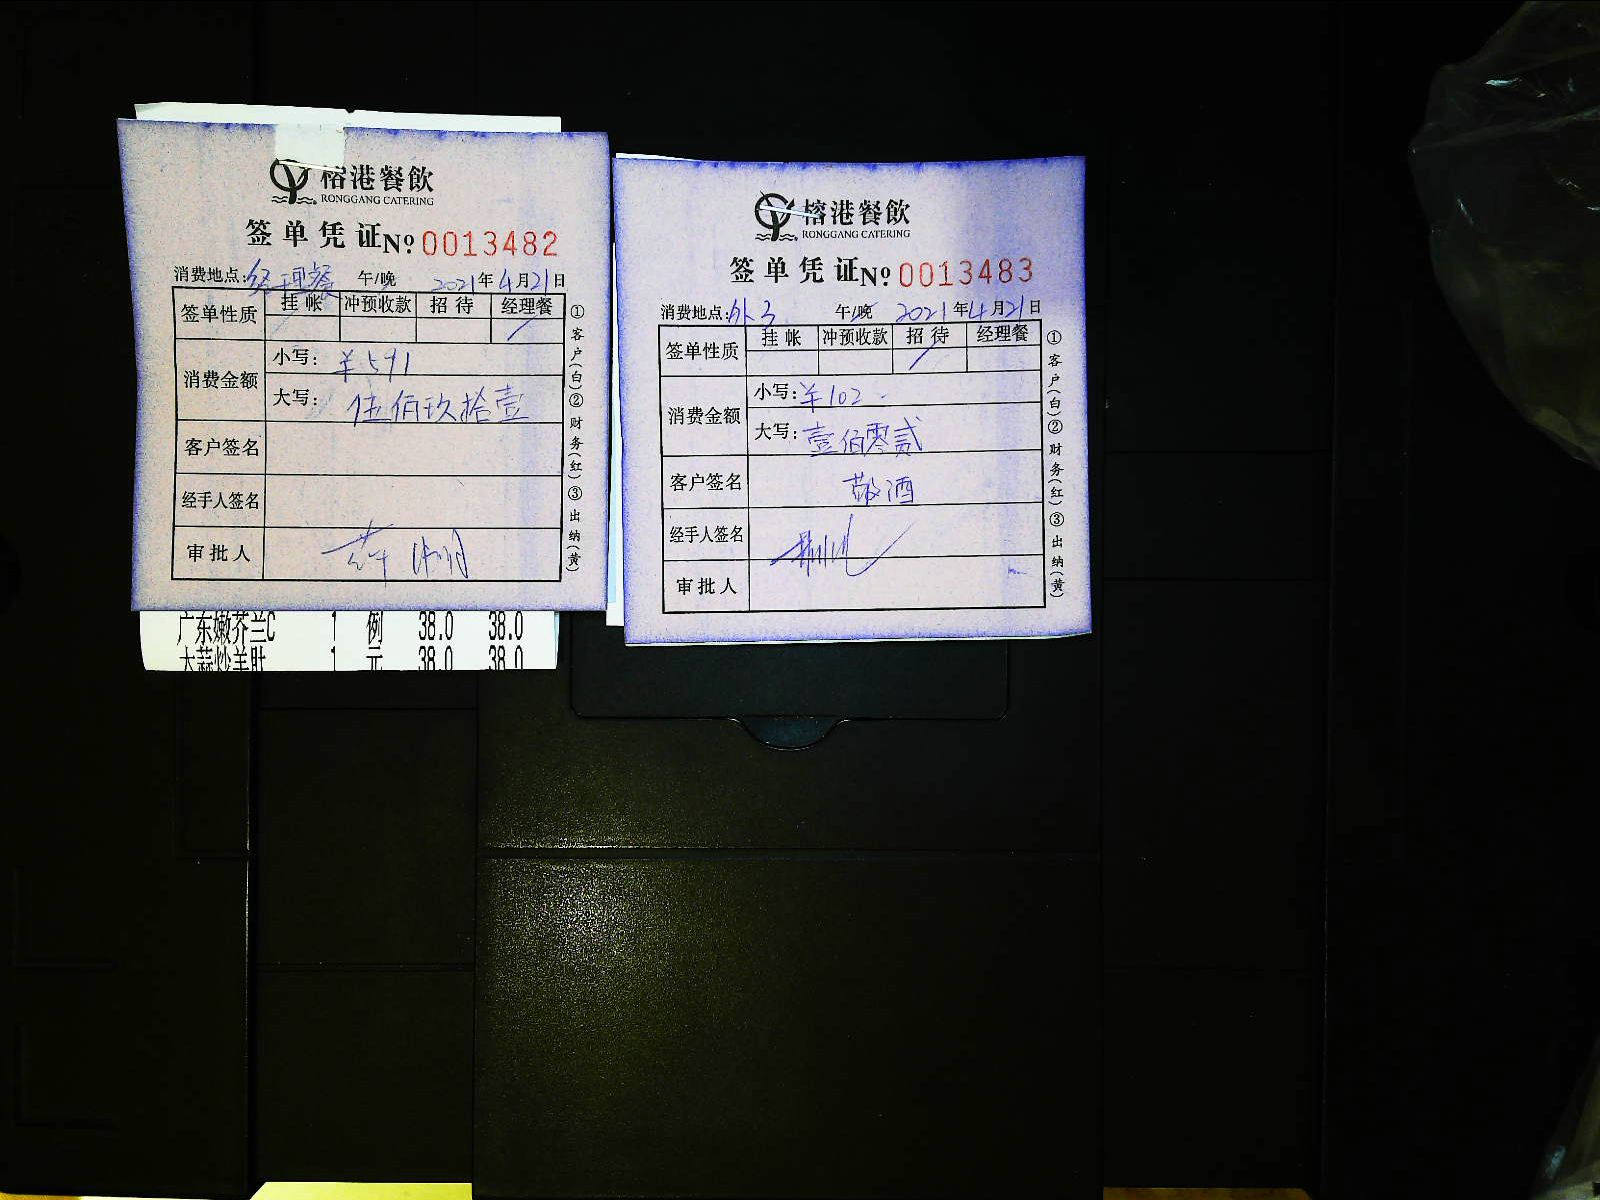 榕港餐飲
RONGGANG CATERING
签单凭证 № 0013482
消费地点: 经理餐 午/晚 2021年4月21日
签单性质 挂帐 冲预收款 招待 经理餐
消费金额
小写: ¥591
大写: 伍佰玖拾壹
客户签名
经手人签名
审批人
①客户(白)②财务(红)③出纳(黄)
广东嫩芥兰C 1 例 38.0 38.0
大蒜炒羊肚 1 元 38.0 38.0
榕港餐飲
RONGGANG CATERING
签单凭证 № 0013483
消费地点: 外3 午/晚 2021年4月21日
签单性质 挂帐 冲预收款 招待 经理餐
消费金额
小写: ¥102
大写: 壹佰零贰
客户签名 敬酒
经手人签名
审批人
①客户(白)②财务(红)③出纳(黄)